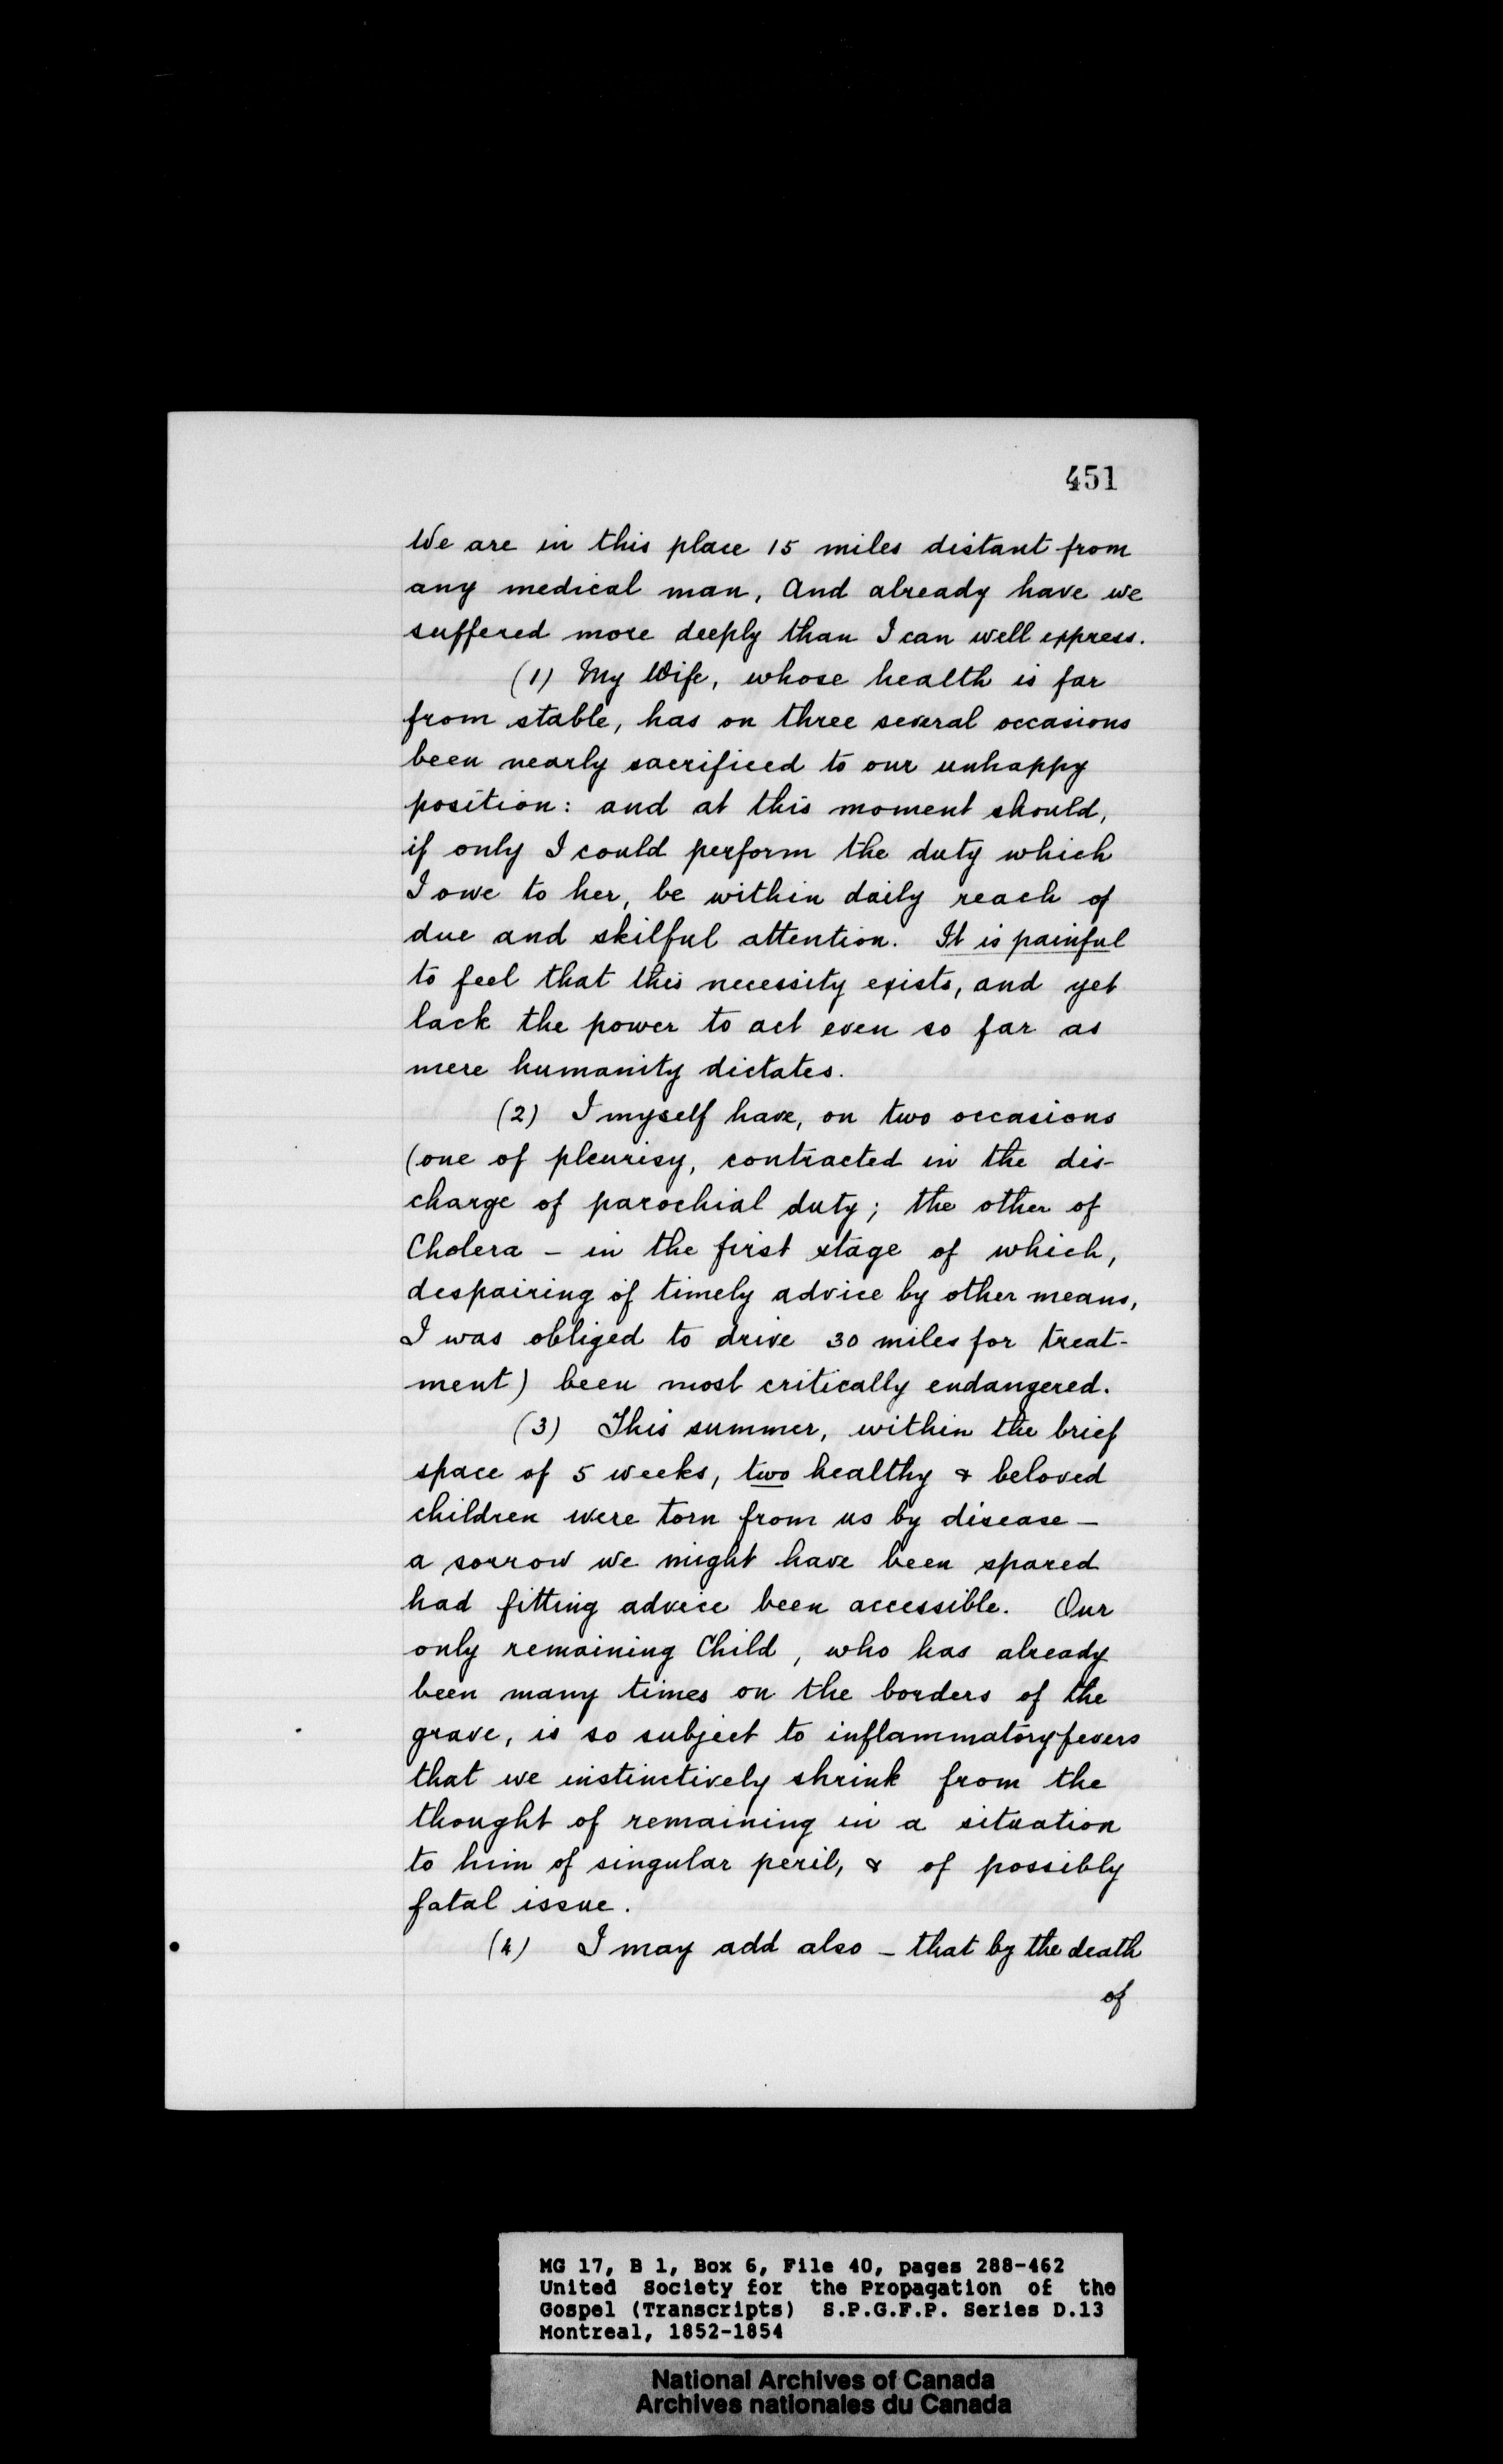 451
We are in this place 15 miles distant from
any medical man, And already have we
suffered more deeply than I can well express.
(1) My Wife, whose health is far
from stable, has on three several occasions
been nearly sacrificed to our unhappy
position: and at this moment should,
if only I could perform the duty which
I owe to her, be within daily reach of
due and skilful attention. It is painful
to feel that this necessity exists, and yet
lack the power to act even so far as
mere humanity dictates.
(2) I myself have, on two occasions
(one of pleurisy, contracted in the dis-
charge of parochial duty; the other of
Cholera - in the first stage of which,
despairing of timely advice by other means,
I was obliged to drive 30 miles for treat-
ment) been most critically endangered.
(3) This summer, within the brief
space of 5 weeks, two healthy & beloved
children were torn from us by disease -
a sorrow we might have been spared
had fitting advice been accessible. Our
only remaining Child, who has already
been many times on the borders of the
grave, is so subject to inflammatory fevers
that we instinctively shrink from the
thought of remaining in a situation
to him of singular peril, & of possibly
fatal issue.
(4) I may add also - that by the death
of
MG 17, B 1, Box 6, File 40, pages 288-462
United Society for the Propagation of the
Gospel (Transcripts) S.P.G.F.P. Series D.13
Montreal, 1852-1854
National Archives of Canada
Archives nationales du Canada